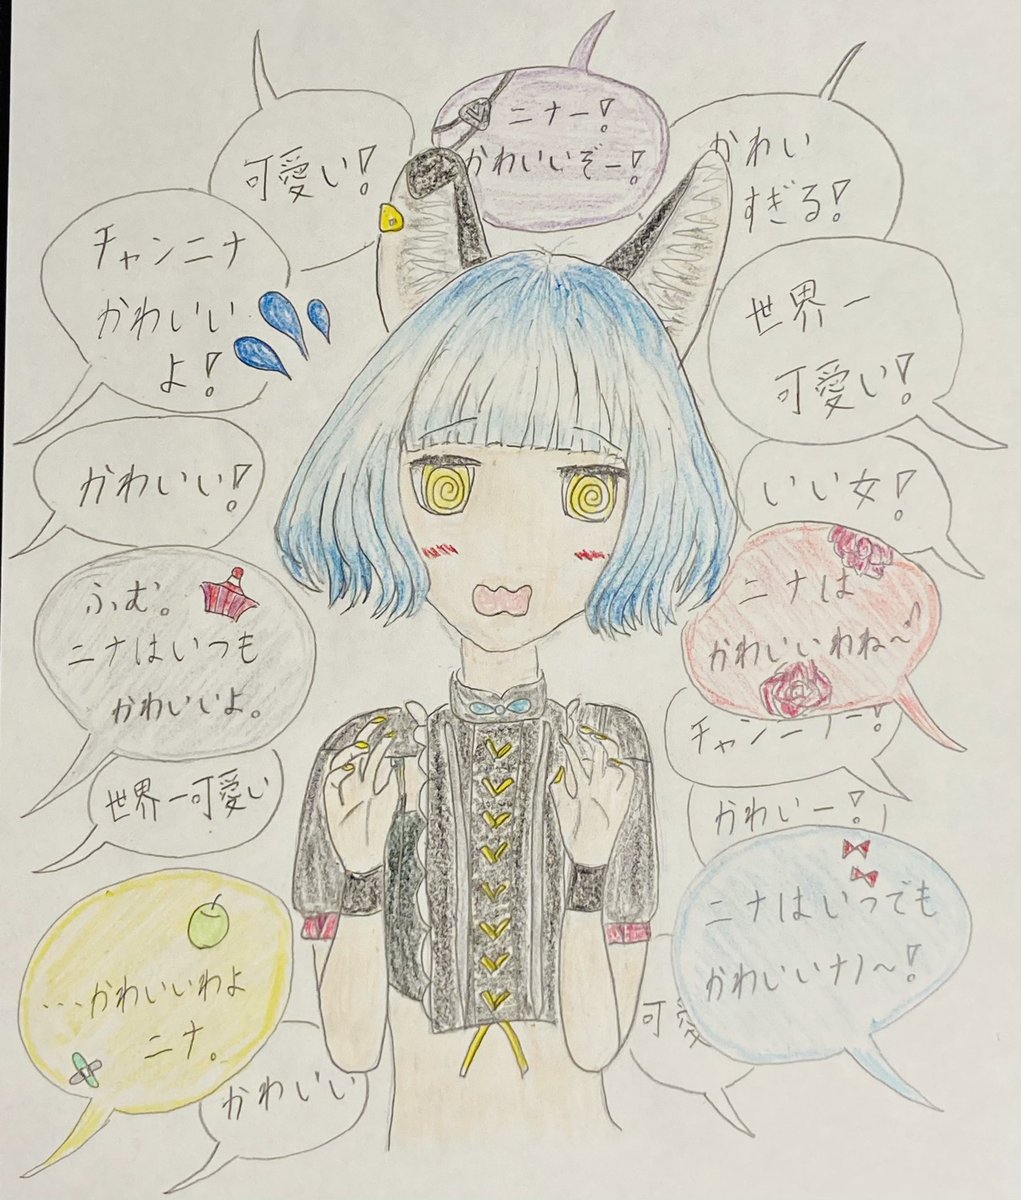 可愛い!
ニナー!
かわいいぞー!
かわい
すぎる!
チャンニナ
かわいい
よ!
世界一
可愛い!
かわいい!
いい女!
ふむ。
ニナはいつも
かわいいよ。
ニナは
かわいいわね〜!
チャンニナー!
世界一可愛い
かわいー!
ニナはいつでも
かわいいナノ〜!
…かわいいわよ
ニナ。
可愛
かわいい